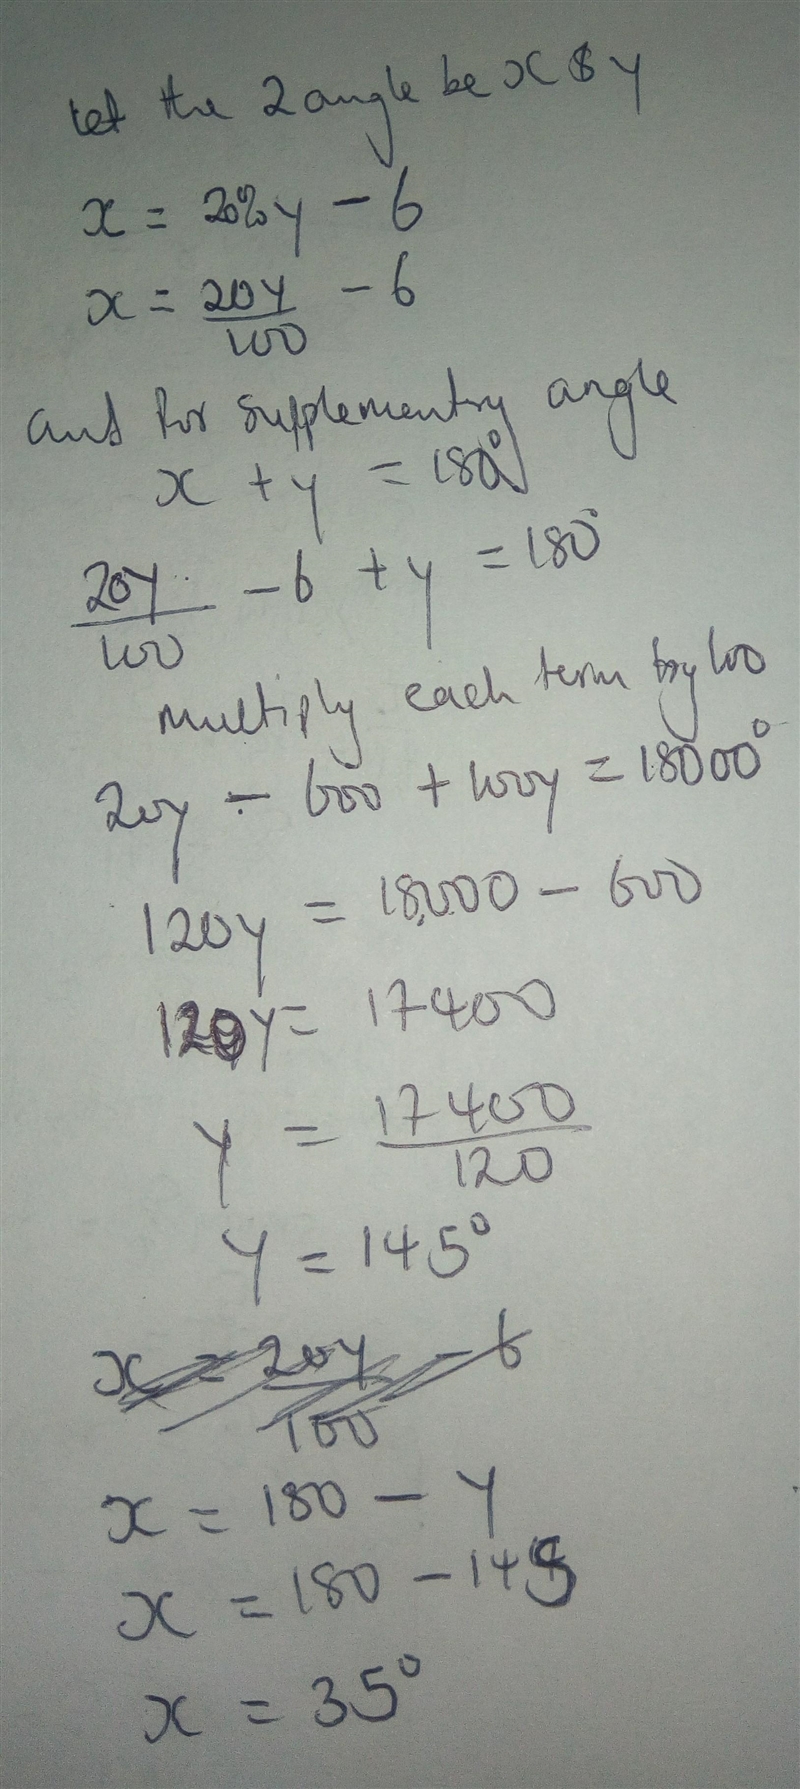 Let the 2 angle be x & y
x = 20%y - 6
x = 20y/100 - 6
and for supplementry angle
x + y = 180°
20y/100 - 6 + y = 180°
multiply each term by 100
20y - 600 + 100y = 18000°
120y = 18000 - 600
120y = 17400
y = 17400/120
y = 145°
x = 20y/100 - 6
x = 180 - y
x = 180 - 145
x = 35°